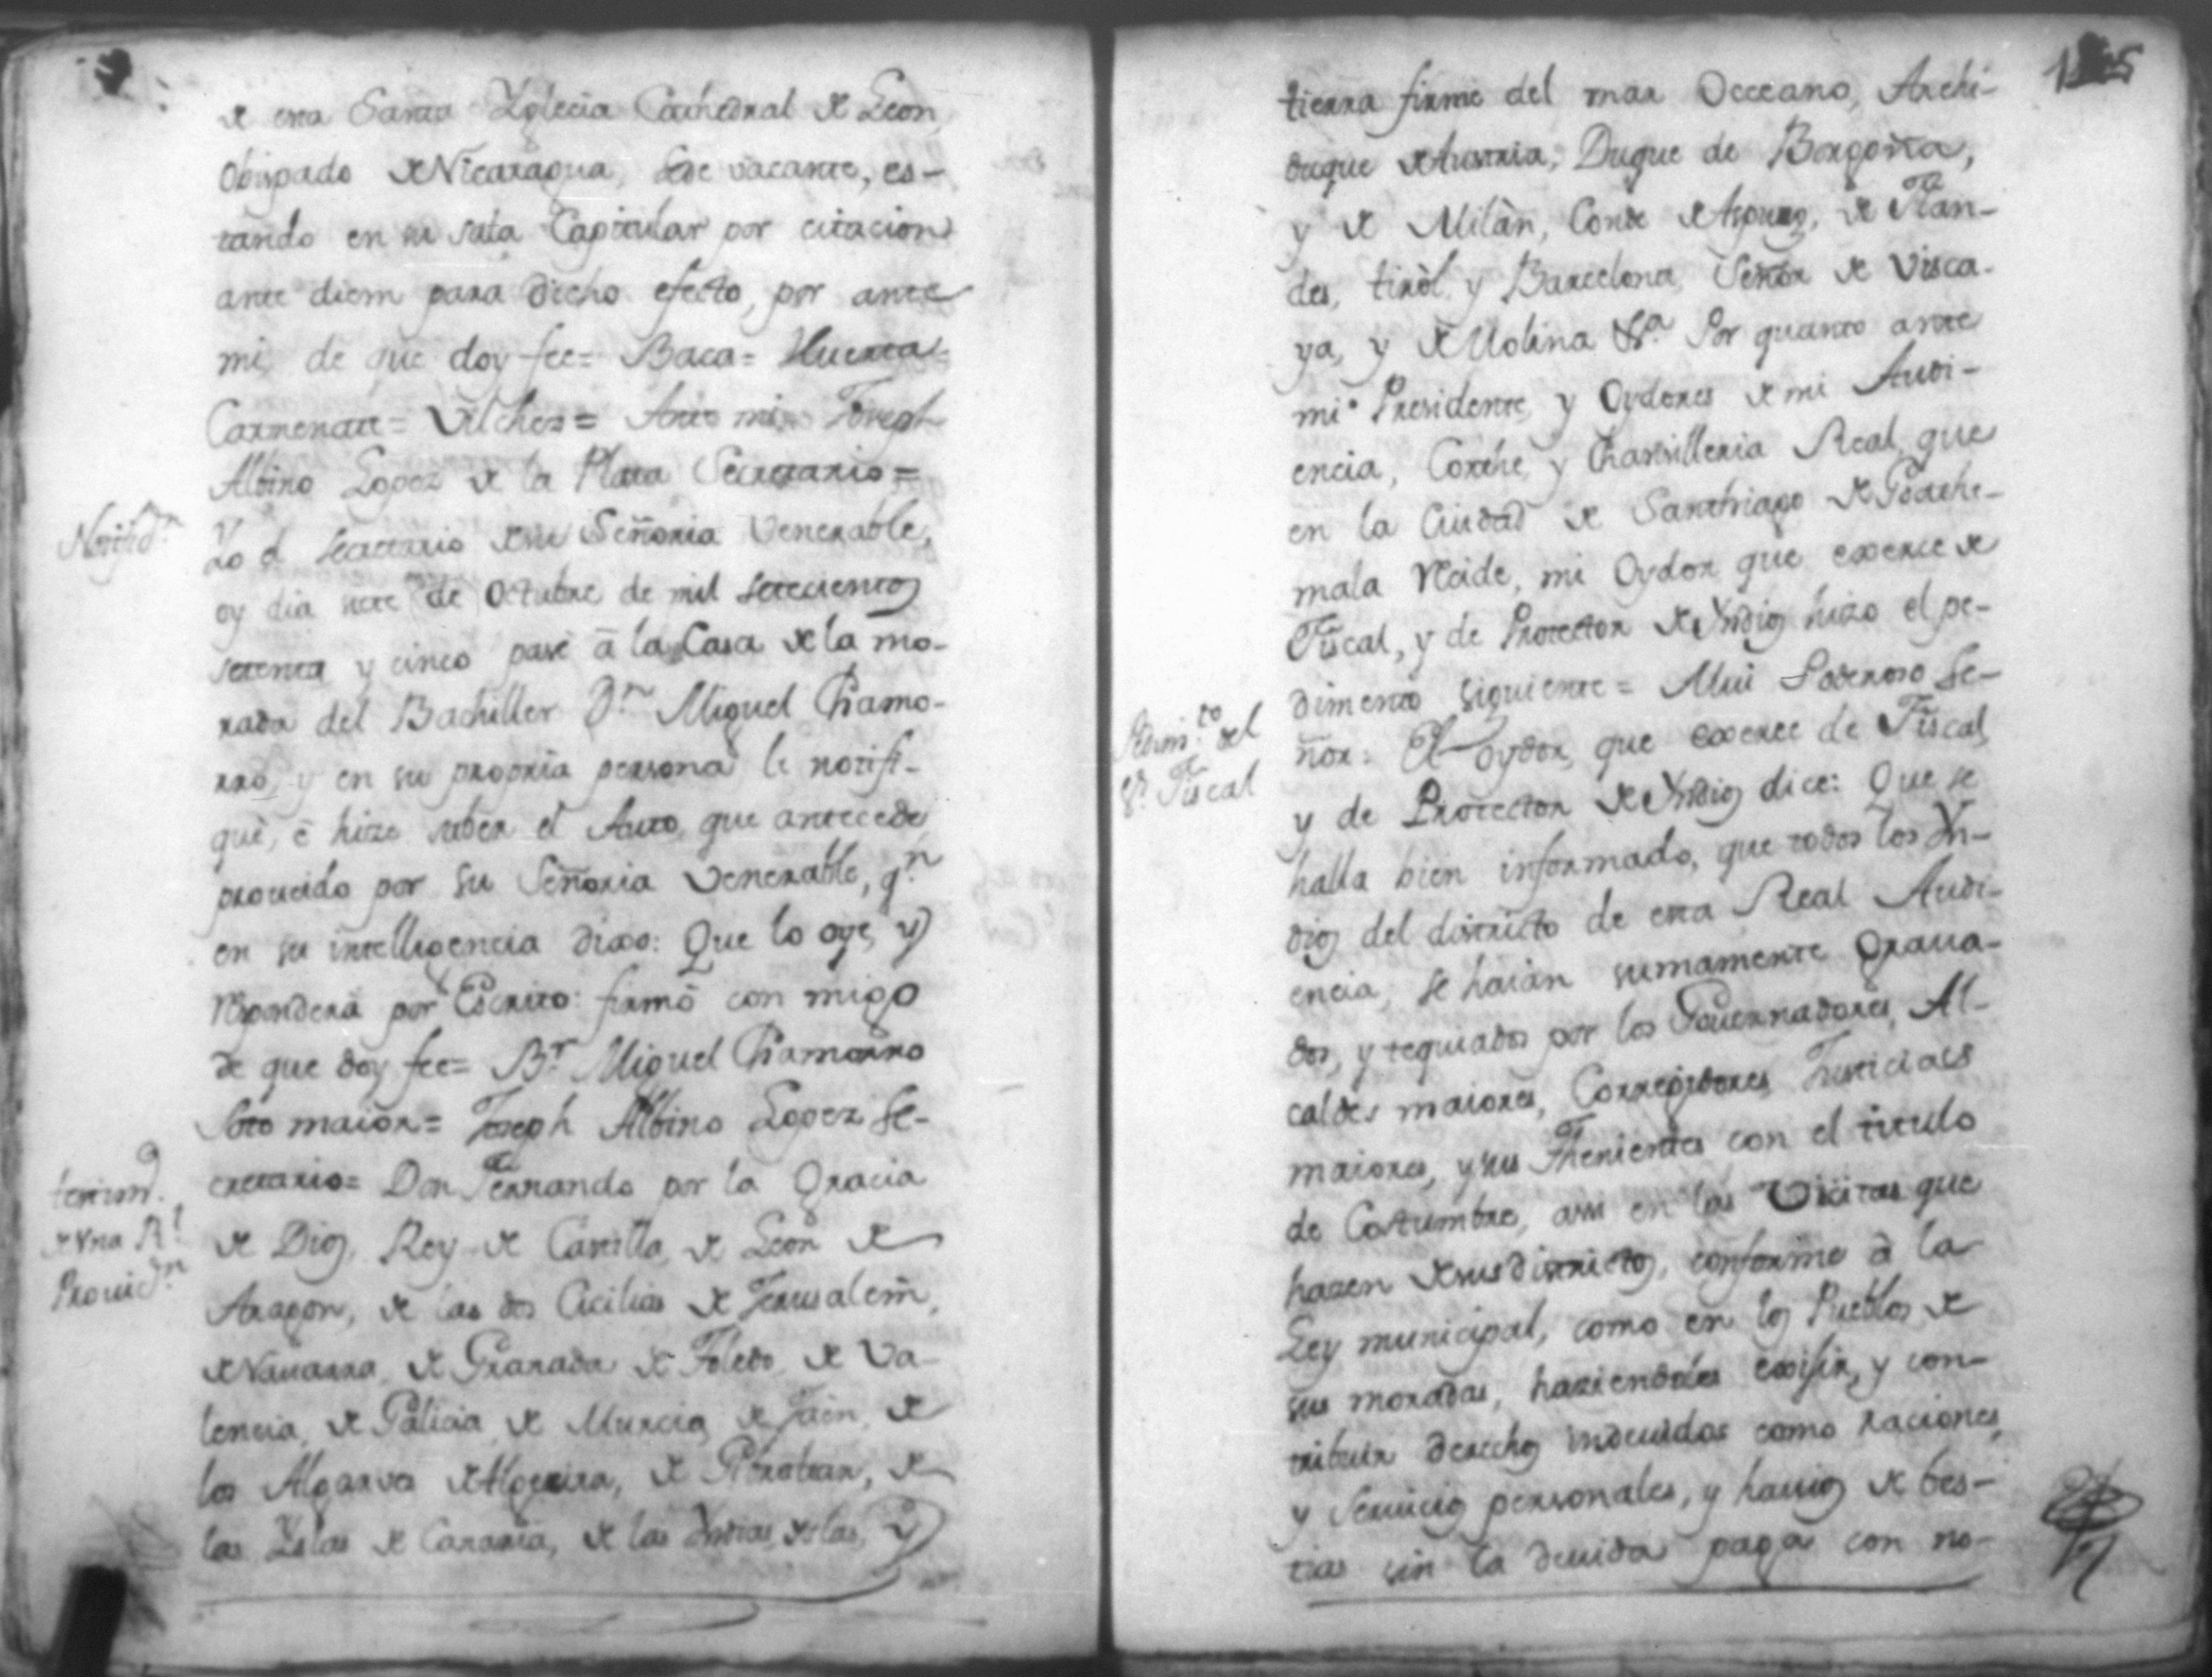 de esta Santa Yglecia Cathedral de Leon,
Obispado de Nicaragua, Sede vacante, es-
tando en su sala Capitular por citacion
ante diem para dicho efecto, por ante
mi, de que doy fee= Baca= Huerta=
Carmenate= Vilches= Ante mi, Joseph
Albino Lopez de la Plata Secretario=
Notificn.
Yo el Secretario de su Señoria Venerable,
oy dia siete de Octubre de mil setecientos
setenta y cinco pasé â la Casa de la mo-
rada del Bachiller Dn. Miguel Chamo-
rro, y en su propria persona le notifi-
què, ê hize saber el Auto, que antecede
proueido por su Señoria Venerable, qn.
en su intelligencia dixo: Que lo oye, y
responderá por Escrito: firmô con migo
de que doy fee= Br. Miguel Chamorro
Soto maior= Joseph Albino Lopez Se-
cretario= Don Fernando por la Gracia
testimo.
de vna Rl.
Prouicn.
de Dios, Rey de Castilla, de Leon de
Aragon, de las dos Cicilias de Jerusalem,
de Nauarra, de Granada de Toledo, de Va-
lencia, de Galicia, de Murcia, de Jaen, de
los Algarves de Algecira, de Gibraltar, de
las Yslas de Canaria, de las Yndias, Yslas, y
125
tierra firme del mar Occeano, Archi-
duque de Austria, Duque de Borgoña,
y de Milàn, Conde de Aspurg, de Flan-
des, tiròl, y Barcelona, Señor de Visca-
ya, y de Molina &a. Por quanto ante
mi Presidente, y Oydores de mi Audi-
encia, Corthe, y Chansilleria Real, que
en la Ciudad de Santhiago de Goathe-
mala Reside, mi Oydor que exerce de
Fiscal, y de Protector de Yndios hizo el pe-
dimento siguiente= Mui Poderoso Se-
Pedimto. del
Sr. Fiscal
ñor: El oydor, que exerce de Fiscal,
y de Protector de Yndios dice: Que se
halla bien informado, que todos los Yn-
dios del districto de esta Real Audi-
encia, se haian sumamente graua-
dos, y tequiados por los Gouernadores, Al-
caldes maiores, Corregidores, Justicias
maiores, y sus Thenientes con el titulo
de Costumbre, assi en las Visitas que
hazen de sus districtos, conforme à la
Ley municipal, como en los Pueblos de
sus moradas, haziendoles exsisir, y con-
tribuir derechos indeuidos como raciones,
y Seruicios personales, y hauios de bes-
tias sin la deuida paga con no-